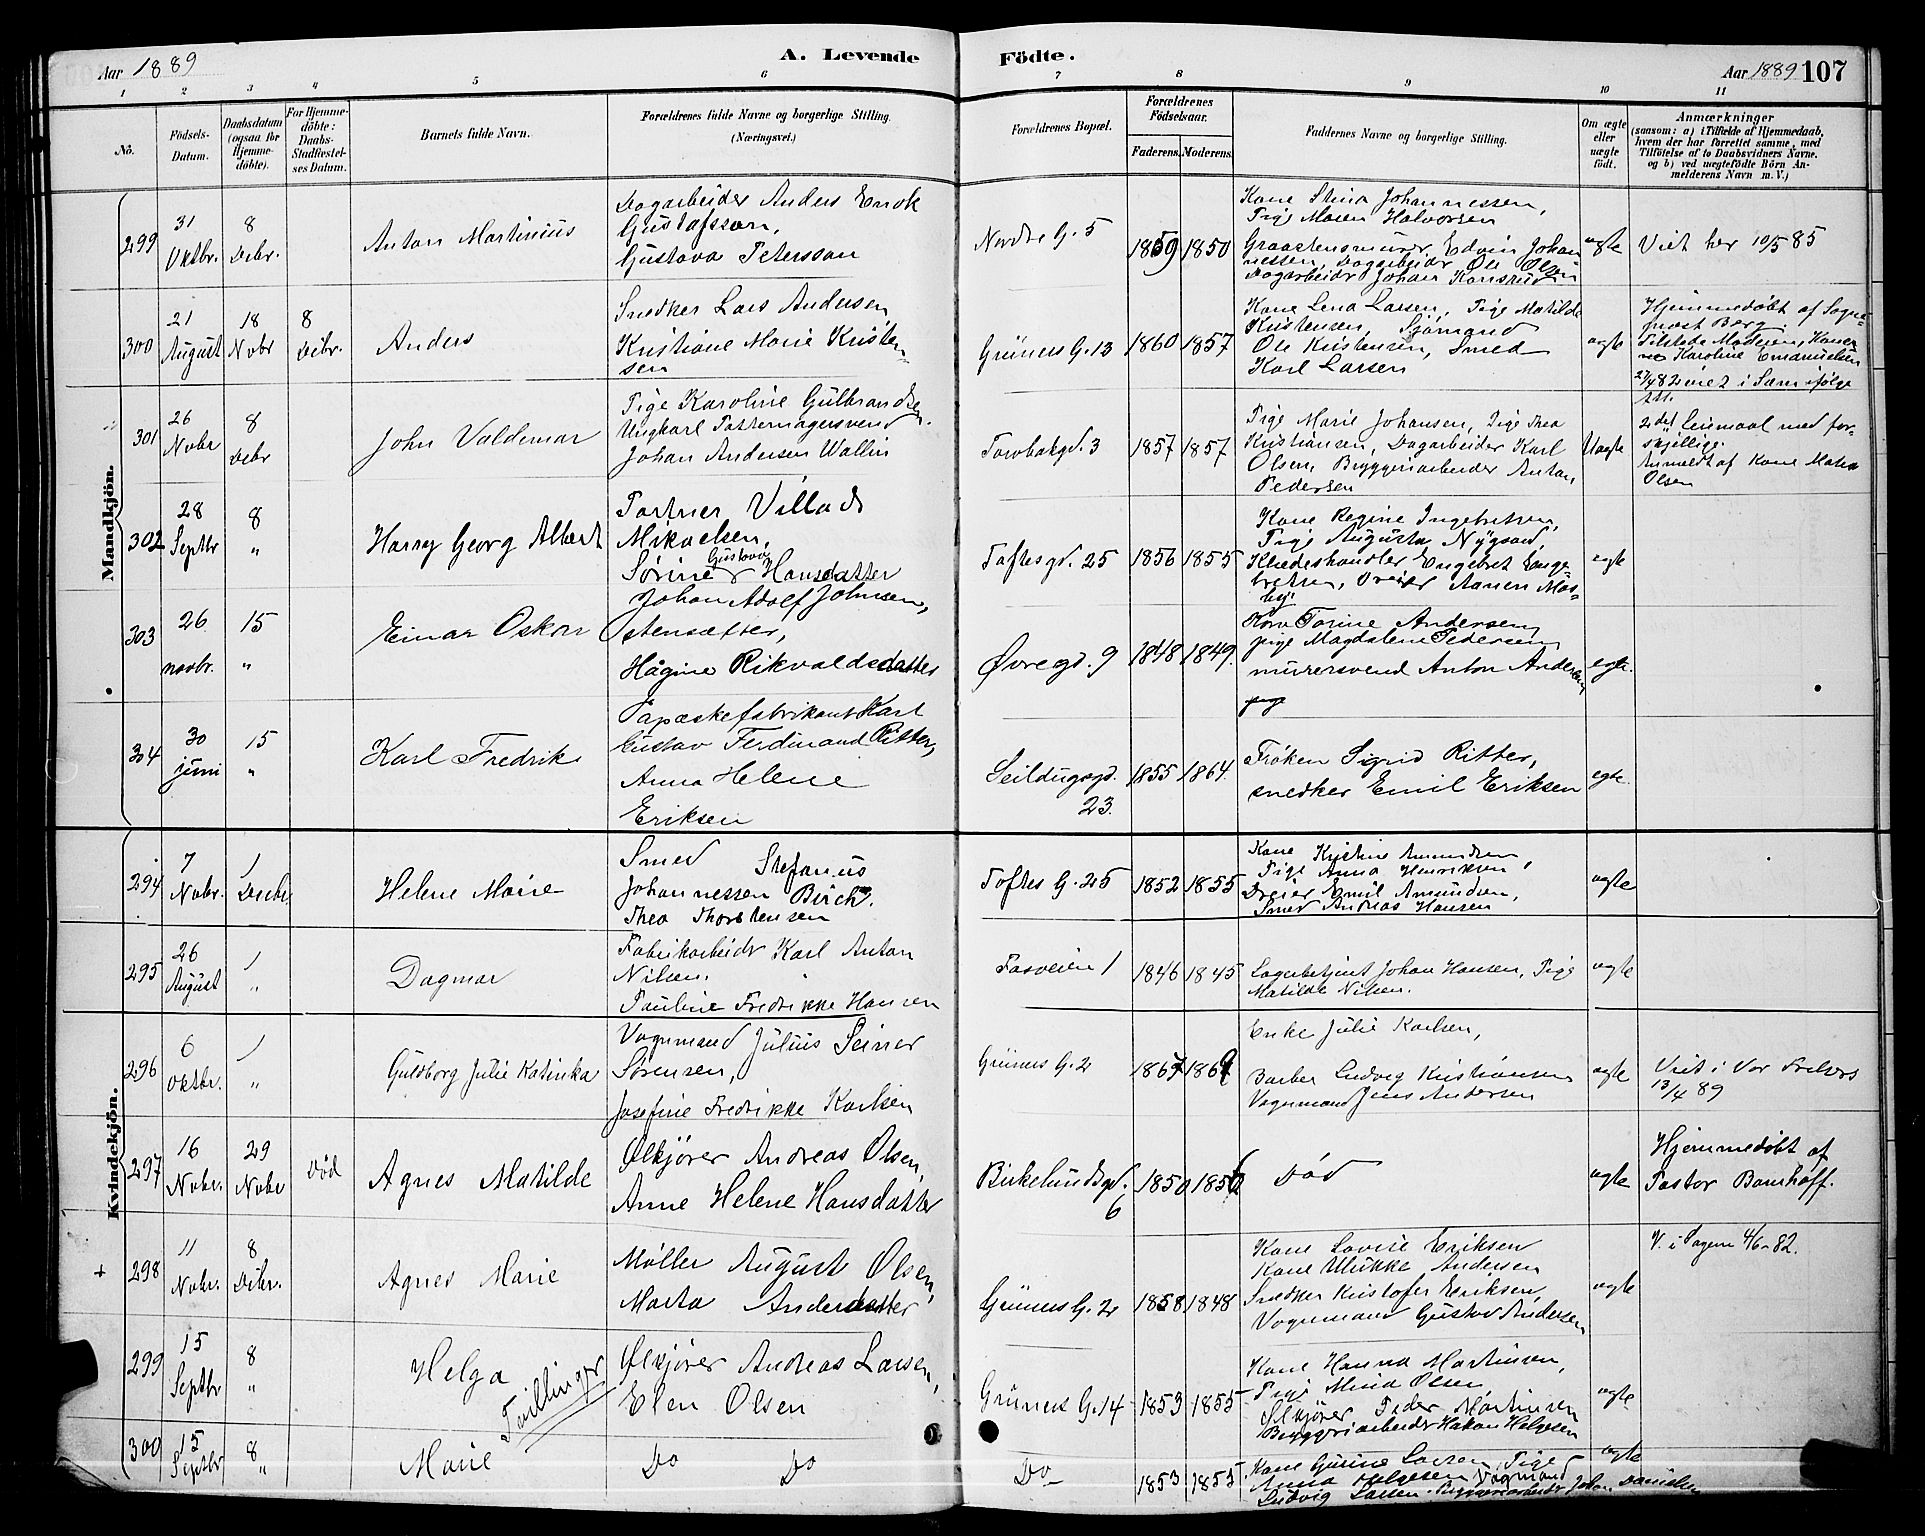 Aar 1889
A. Levende Födte.
Aar 1889 107
1 2 3 4 5 6 7 8 9 10 11
No.
Födsels-
Datum.
Daabsdatum
(ogsaa for
Hjemme-
döbte).
For Hjemme-
döbte:
Daabs-
Stadfæstel-
ses Datum.
Barnets fulde Navn.
Forældrenes fulde Navne og borgerlige Stilling.
(Næringsvei.)
Forældrenes Bopæl.
Forældrenes
Födselsaar.
Faderens. Moderens.
Faddernes Navne og borgerlige Stilling.
Om ægte
eller
uægte
født.
Anmærkninger
(saasom: a) i Tilfælde af Hjemmedaab,
hvem der har forrettet samme, med
Tilföielse af to Daabsvidners Navne.
og b) ved uægtefödte Börn An-
melderens Navn m. V.)
Mandkjön.
299
31
Oktbr.
8
Debr.
Anton Martinius
Dagarbeider Anders Enok
Gustafsson,
Gustava Petersson
Nordre G. 5
1859 1850
Kone Stina Johannessen,
Pige Maren Halvorsen
Graastensmurer Edvin Johan
nessen, Dagarbeidr Ole Olsen
Dagarbeidr Johan
ægte
Viet her 10/5 85
300
21
August
18
Nobr
8
Debr.
Anders
Snedker Lars Andersen
Kristiane Marie Kristen-
sen
Grüners G. 13
1860 1857
Kone Lena Larsen, Pige Matilde
Kristensen, Sjømand
Ole Kristensen, Smed
Karl Larsen
ægte
Hjemmedøbt af Sogne-
prest Berg.
Tilstede Moderen, Kone
Karoline Emanuelsen
27/4 82 viet i Sarm ifølge
Att.
301
26
Nobr
8
Debr
John Valdemar
Pige Karoline Gulbrandsen.
Ungkarl Pottemagersvend
Johan Andersen Wallin
Torvbakgd. 3
1857 1857
Pige Marie Johansen, Pige Thea
Kristiansen, Dagarbeider Karl
Olsen, Bryggeriarbeider Anton
Pedersen
Uægte
2det Leiermaal med for-
skjellige.
Anmeldt af Kone Maten
Olsen
302
28
Septbr
8
"
Harry Georg Albert
Portner Villads
Mikaelsen,
Gustava
Sørine Hansdatter
Toftesgd. 25
1856 1855
Kone Regine Ingebretsen,
Pige Augusta Nygaard,
Klædeshandler Engebret Enge
bretsen, Dreier Aanen Mos-
by.
ægte
303
26
novbr.
15
"
Einar Oskar
Johan Adolf Johnsen,
stensætter,
Hågine Rikvaldsdatter
Øvregd. 9
1848 1849.
Kone Torine Andersen,
pige Magdalene Pedersen,
murersvend Anton Andersen
pige
egte.
304
30
juni
15
"
Karl Fredrik
Papæskefabrikant Karl
Gustav Ferdinand Ritter,
Anna Helene
Eriksen
Seildugsgd.
23.
1855 1864.
Frøken Sigrid Ritter,
snedker Emil Eriksen
egte.
Kvindekjön.
294
7
Nobr.
1
Decbr
Helene Marie
Smed Stefanus
Johannessen Birch.
Thea Thorstensen
Toftes G. 25
1852 1855
Kone Kristine Amundsen,
Pige Anna Henriksen,
Dreier Emil Amundsen,
Smed Andreas Hansen
ægte
295
26
August
1
"
Dagmar
Fabrikarbeidr Karl Anton
Nilsen.
Pauline Fredrikke Hansen
Fosveien 1
1846 1845
Lagerbetjent Johan Hansen, Pige
Matilde Nilsen.
ægte
296
6
Oktbr.
1
"
Guldborg Julie Katinka
Vognmand Julius Seiner
Sørensen,
Josefine Fredrikke Karlsen
Grüners G. 2
1867 1869
Enke Julie Karlsen,
Barber Ludvig Kristiansen
Vognmand Jens Andersen
ægte
Viet i Vor Frelsers
13/4 89
297
16
Nobr.
29
Nobr
Død
Agnes Matilde
Ølkjører Andreas Olsen,
Anne Helene Hansdatter
Birkelundsgd.
6
1850 1856
Død
ægte
Hjemmedøbt af
Pastor Bomhoff.
298
11
Nobr.
8
Debr.
Agnes Marie
Møller August Olsen,
Marta Andersdatter
Grüners G. 2
1858 1848
Kone Lovise Eriksen
Kone Ulrikke Andersen
Snedker Kristofer Eriksen,
Vognmand Gustav Andersen
ægte
V. i Sagene 4/6-82.
299
15
Septbr
8
"
Helga
Tvillinger
Ølkjører Andreas Larsen,
Elen Olsen
Grüners G. 14
1853 1855
Kone Hanna Martinsen,
Pige Mina Olsen
Ølkjører Peder Martinsen
Bryggeriarbeider Hakon Helgesen
ægte
300
15
Septbr
8
"
Marie
Do Do
Do
1853 1855
Kone Gurine Larsen, Pige
Anna Helgesen, Vognmand
Ludvig Larsen, Bryggeriarbeider Johan Danielsen
ægte